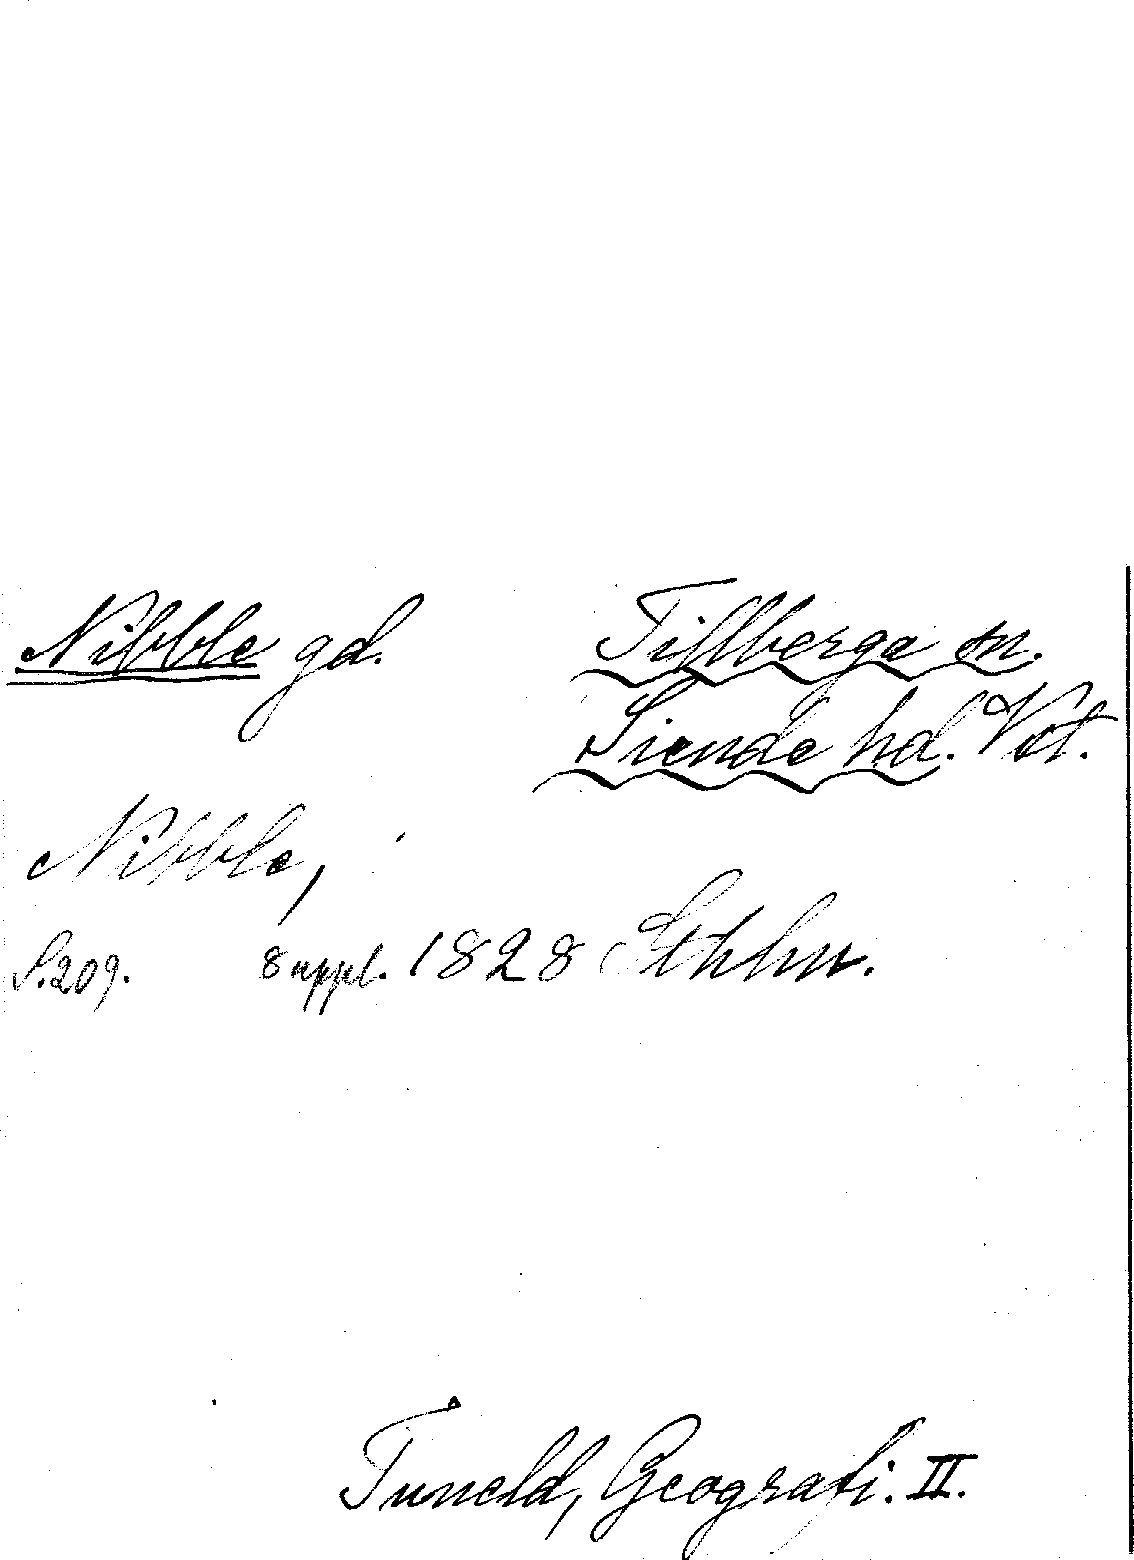 Nibble gd. Tillberga sn.
Siende hd. Vstm.
Nibble,
S. 209. Suppl. 1828 Sthlm.
Tuneld, Geografi. II.